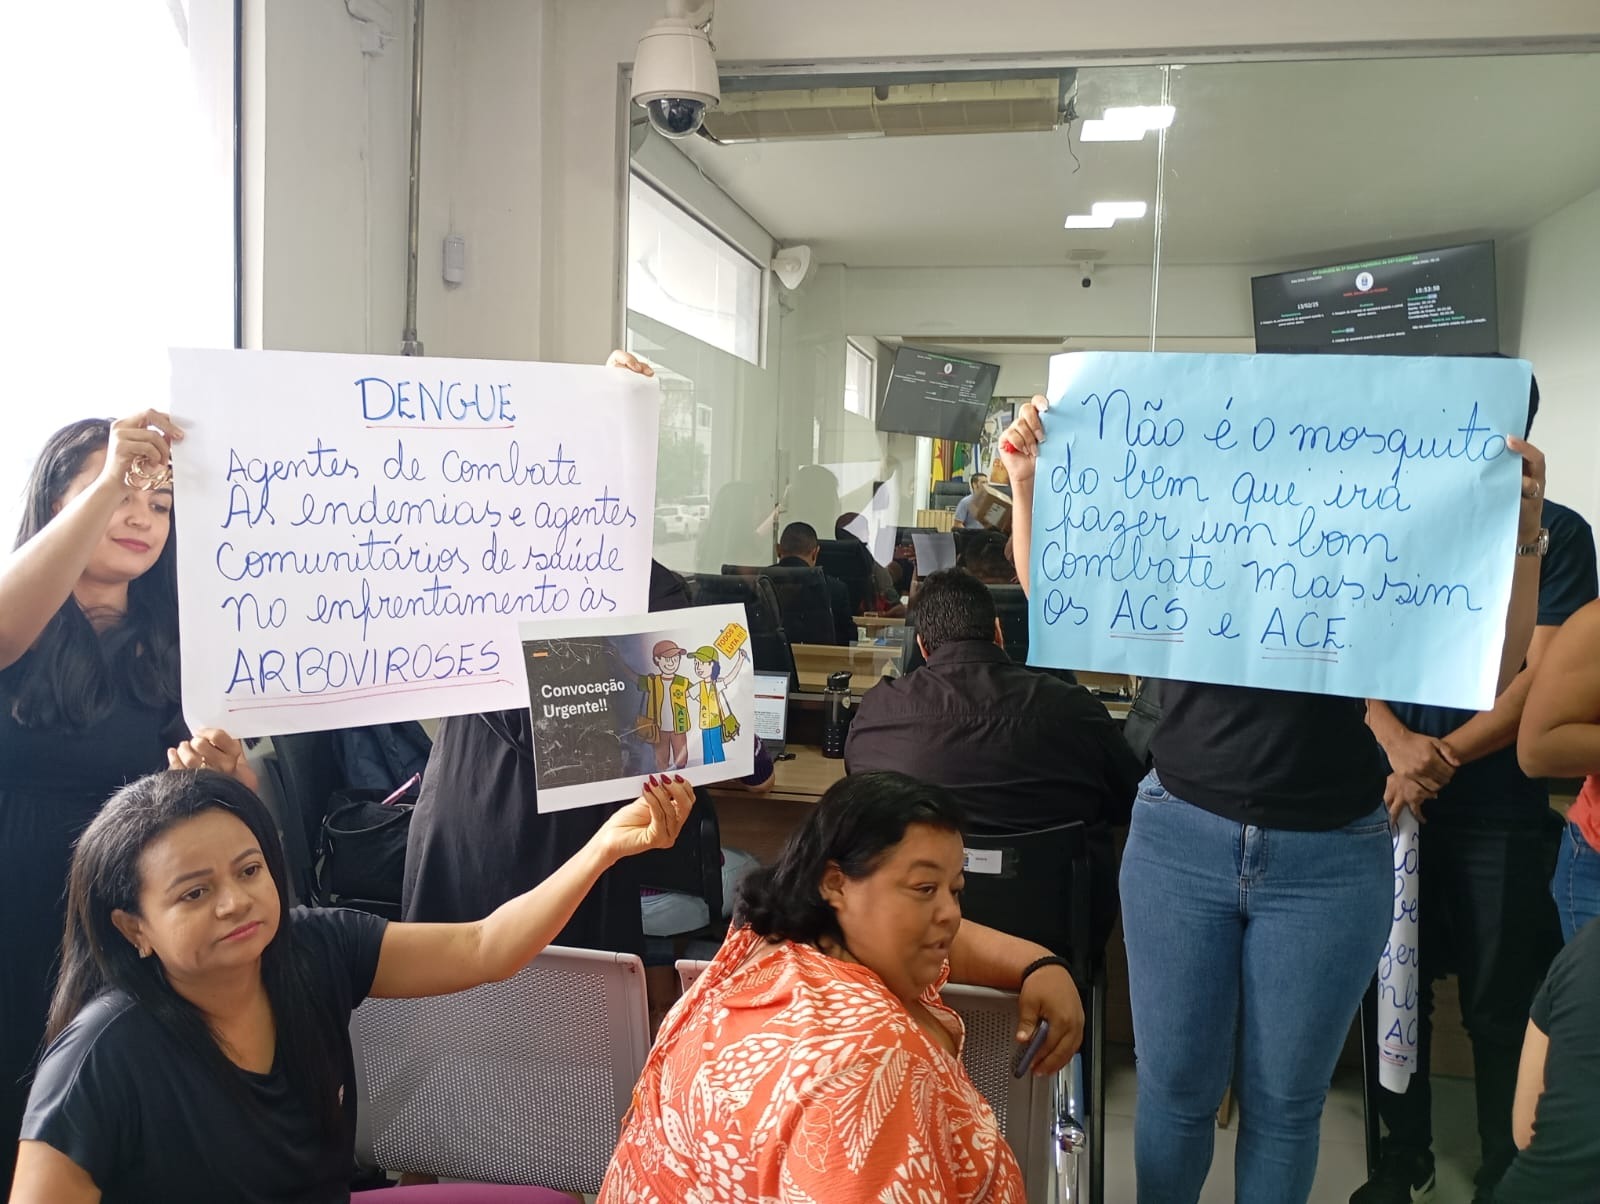 DENGUE
Agentes de combate
Às endemias e agentes
comunitários de saúde
no enfrentamento às
ARBOVIROSES
Convocação
Urgente!!
TODOS À
LUTA!!!
ACE
ACS
Não é o mosquito
do bem que irá
fazer um bom
combate mas sim
os ACS e ACE.
13/02/25
10:53:50